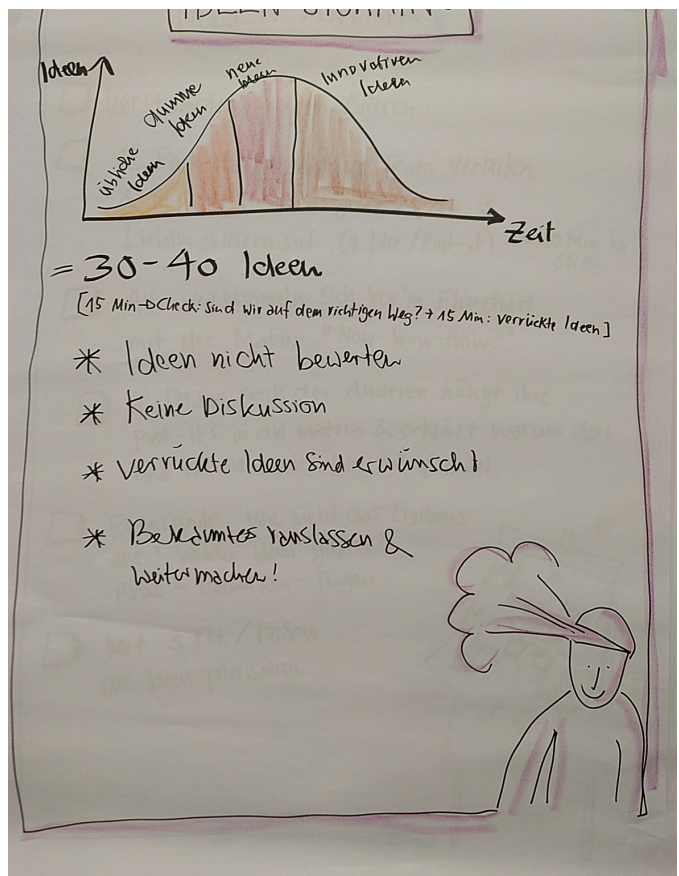 Ideen
übliche Ideen
dumme Ideen
neue Ideen
Innovativen Ideen
Zeit
= 30-40 Ideen
[15 Min → Check: Sind wir auf dem richtigen Weg? → 15 Min: verrückte Ideen]
* Ideen nicht bewerten
* Keine Diskussion
* verrückte Ideen sind erwünscht
* Bekanntes rauslassen &
weitermachen!